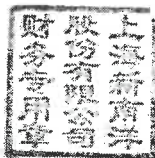 上海新南洋
股份有限公司
财务专用章